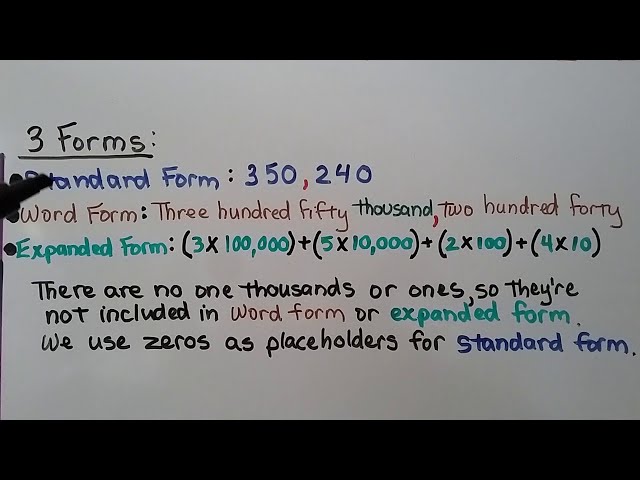 3 Forms:
•Standard Form: 350,240
•Word Form: Three hundred fifty thousand, Two hundred forty
•Expanded Form: (3×100,000)+(5×10,000)+(2×100)+(4×10)
There are no one thousands or ones, so they're
not included in word form or expanded form.
We use zeros as placeholders for standard form.